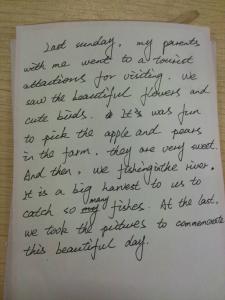 Last sunday, my parents
with me went to a tourist
attactions for visiting. we
saw the beautiful flowers and
cute birds. It's was fun
to pick the apple and pears
in the farm. they are very sweet.
And then, we fishing in the river.
It is a big harvest to us to
catch so many fishes. At the last,
we took the pictures to commemorate
this beautiful day.